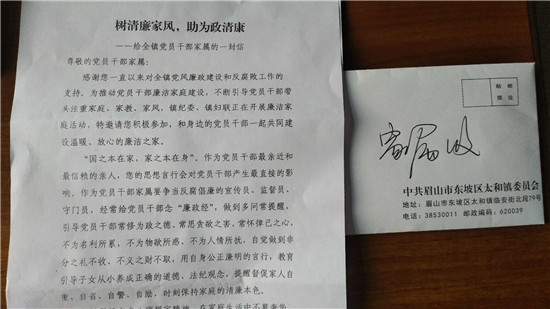 树清廉家风，助为政清廉
——给全镇党员干部家属的一封信
尊敬的党员干部家属：
感谢您一直以来对全镇党风廉政建设和反腐败工作的
支持。为推动党员干部廉洁家庭建设，不断引导党员干部带
头注重家庭、家教、家风，镇纪委、镇妇联正在开展廉洁家
庭活动，特邀请您积极参加，和身边的党员干部一起共同建
设温暖、放心的廉洁之家。
“国之本在家，家之本在身”。作为党员干部最亲近和
最信赖的亲人，您的思想言行会对党员干部产生最直接的影
响，作为党员干部家属要争当反腐倡廉的宣传员、监督员、
守门员，经常给党员干部念“廉政经”，做到多问常提醒，
引导党员干部常修为政之德、常思贪欲之害、常怀律己之心，
不为名利所累、不为物欲所惑、不为人情所扰，自觉做到非
分之礼不收、不义之财不取，用自身公正廉明的言行，教育
引导子女从小养成正确的道德、法纪观念，提醒督促家人自
重、自省、自警、自励，时刻保持家庭的清廉本色。
在家庭生活中不慕奢华
贴邮
票处
中共眉山市东坡区太和镇委员会
地址：眉山市东坡区太和镇临安街北段79号
电话：38530011 邮政编码：620039